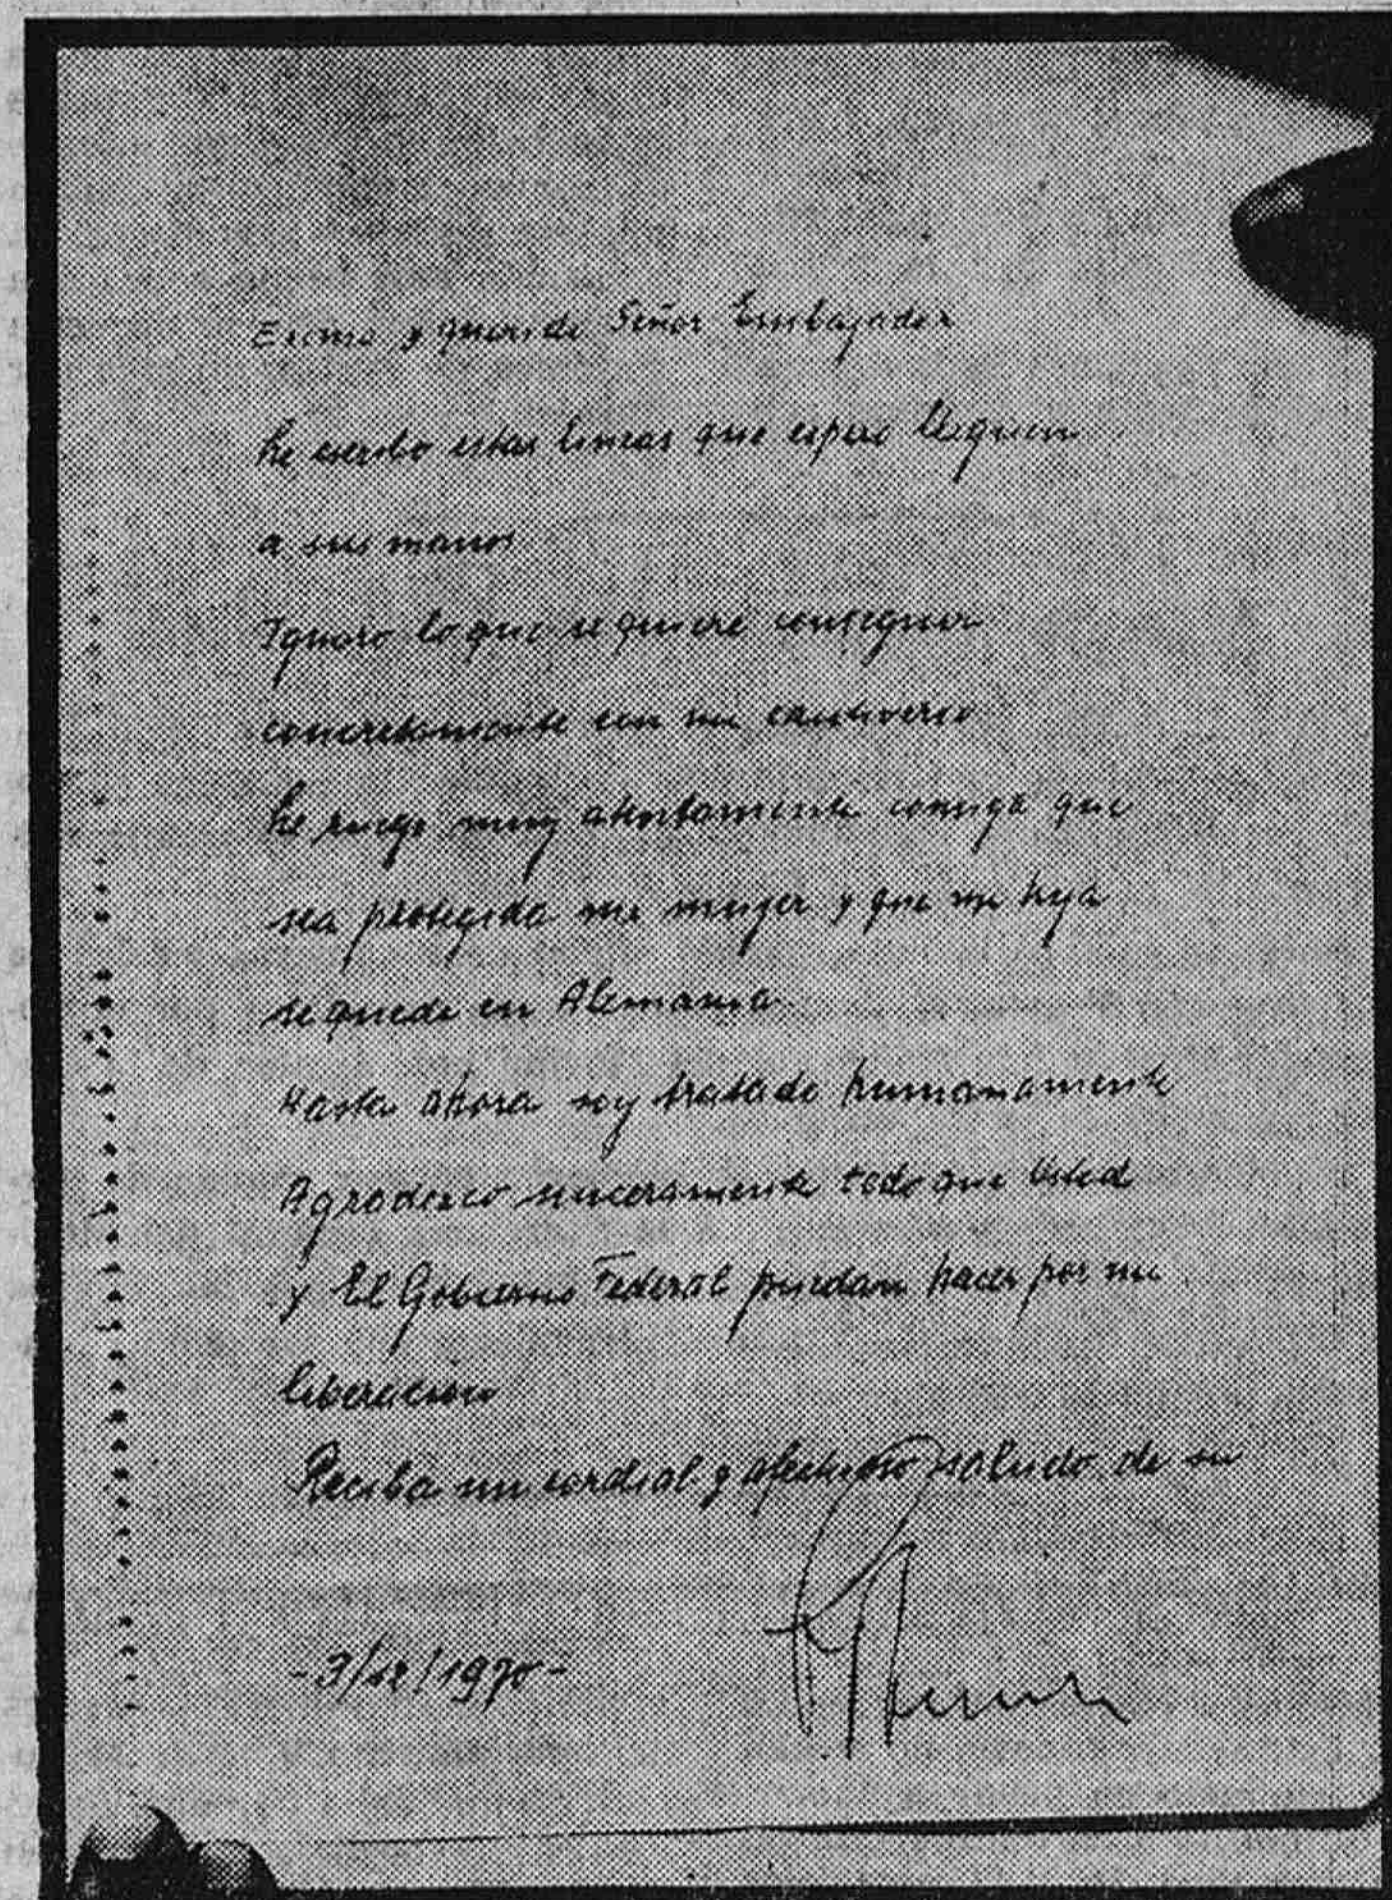 Excmo y querido Señor Embajador
Le escribo estas lineas que espero lleguen
a sus manos
Ignoro lo que se quiere conseguir
concretamente con mi cautiverio
Le ruego muy atentamente consiga que
sea protegida mi mujer y que mi hija
se quede en Alemania.
Hasta ahora soy tratado humanamente
Agradezco sinceramente todo que Usted
y El Gobierno Federal puedan hacer por mi
liberación
Reciba un cordial y afectuoso saludo de su
-3/12/1970-